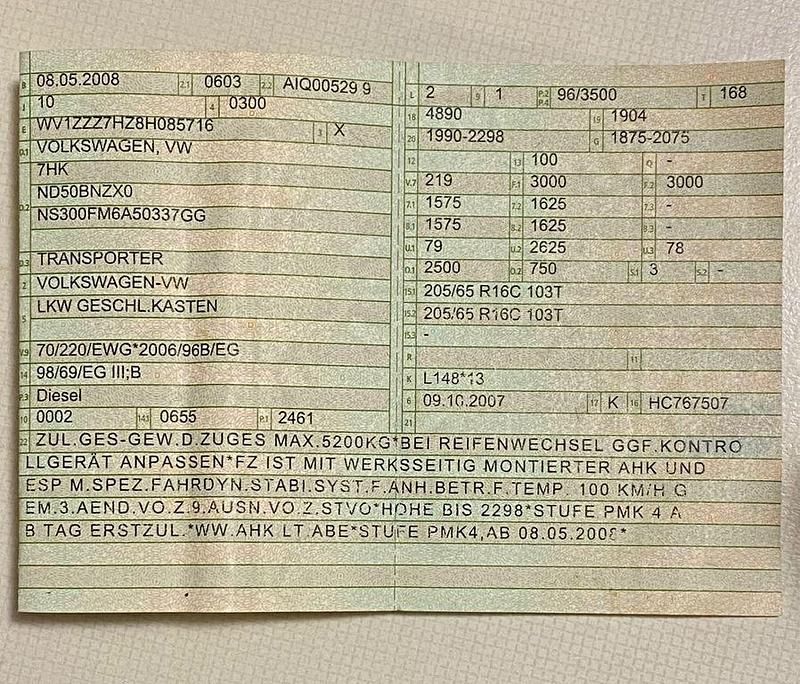 B 08.05.2008 2.1 0603 2.2 AIQ00529 9
J 10 4 0300
E WV1ZZZ7HZ8H085716 3 X
D.1 VOLKSWAGEN, VW
7HK
D.2 ND50BNZX0
NS300FM6A50337GG
D.3 TRANSPORTER
2 VOLKSWAGEN-VW
5 LKW GESCHL.KASTEN
V.9 70/220/EWG*2006/96B/EG
14 98/69/EG III;B
P.3 Diesel
10 0002 14.1 0655 P.1 2461
L 2 9 1 P.2 P.4 96/3500 T 168
18 4890 19 1904
20 1990-2298 G 1875-2075
12 13 100 Q -
V.7 219 F.1 3000 F.2 3000
7.1 1575 7.2 1625 7.3 -
8.1 1575 8.2 1625 8.3 -
U.1 79 U.2 2625 U.3 78
O.1 2500 O.2 750 S.1 3 S.2 -
15.1 205/65 R16C 103T
15.2 205/65 R16C 103T
15.3 -
R 11
K L148*13
6 09.10.2007 17 K 16 HC767507
21
22 ZUL.GES-GEW.D.ZUGES MAX.5200KG*BEI REIFENWECHSEL GGF.KONTRO
LLGERÄT ANPASSEN*FZ IST MIT WERKSSEITIG MONTIERTER AHK UND
ESP M.SPEZ.FAHRDYN.STABI.SYST.F.ANH.BETR.F.TEMP. 100 KM/H G
EM.3.AEND.VO.Z.9.AUSN.VO.Z.STVO*HOHE BIS 2298*STUFE PMK 4 A
B TAG ERSTZUL.*WW.AHK LT ABE*STUFE PMK4,AB 08.05.2008*